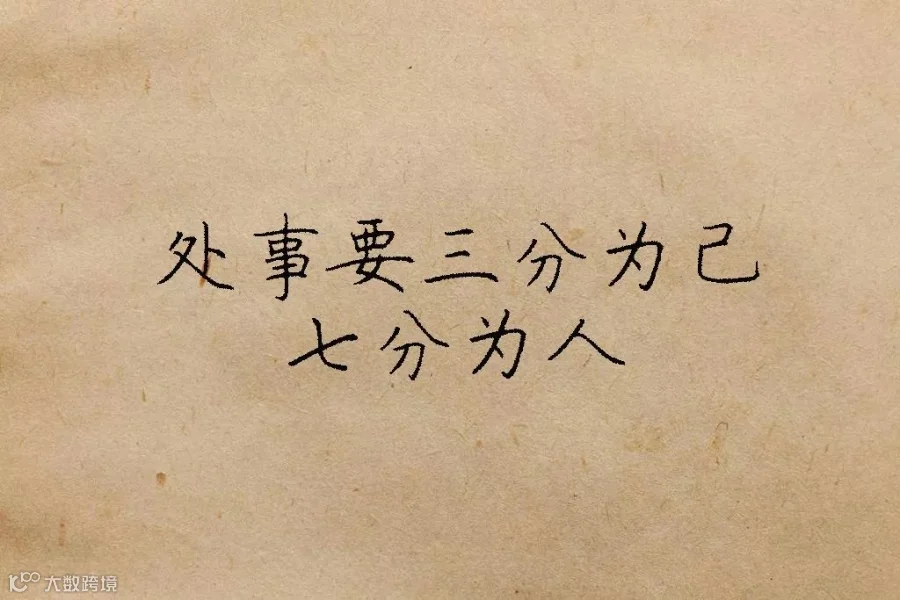 处事要三分为己
七分为人
大数跨境